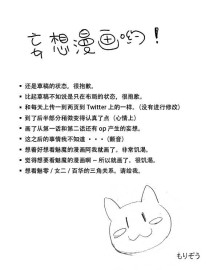 妄想漫画哟！
• 还是草稿的状态，很抱歉。
• 比起草稿不如说是只在布局的状态，很抱歉。
• 和每天上传一到两页到Twitter上的一样。（没有进行修改）
• 到了后半部分稍微变得认真了点（心情上）
• 画了从第一话和第二话还有op产生的妄想。
• 这之后的事情我不知道・・・（颤音）
• 想着好想看魅魔的漫画阿我就画了，非常饥渴。
• 觉得想要看魅魔的漫画啊~所以就画了，很饥渴。
• 想看魅零/女二/百华的三角关系。请给我。
もりぞう